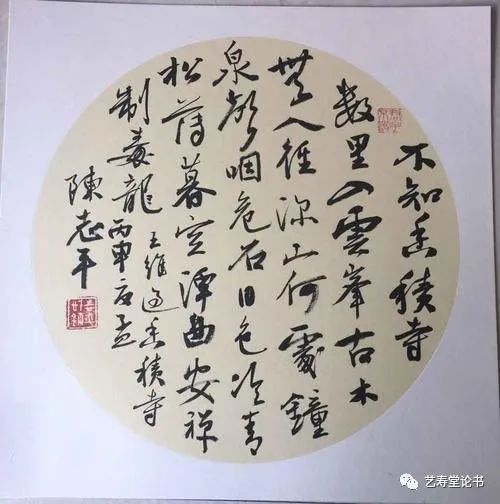 不知香積寺
數里入雲峯古木
無人徑深山何處鐘
泉聲咽危石日色冷青
松薄暮空潭曲安禪
制毒龍 王維過香積寺
丙申
陳志平
艺寿堂论书